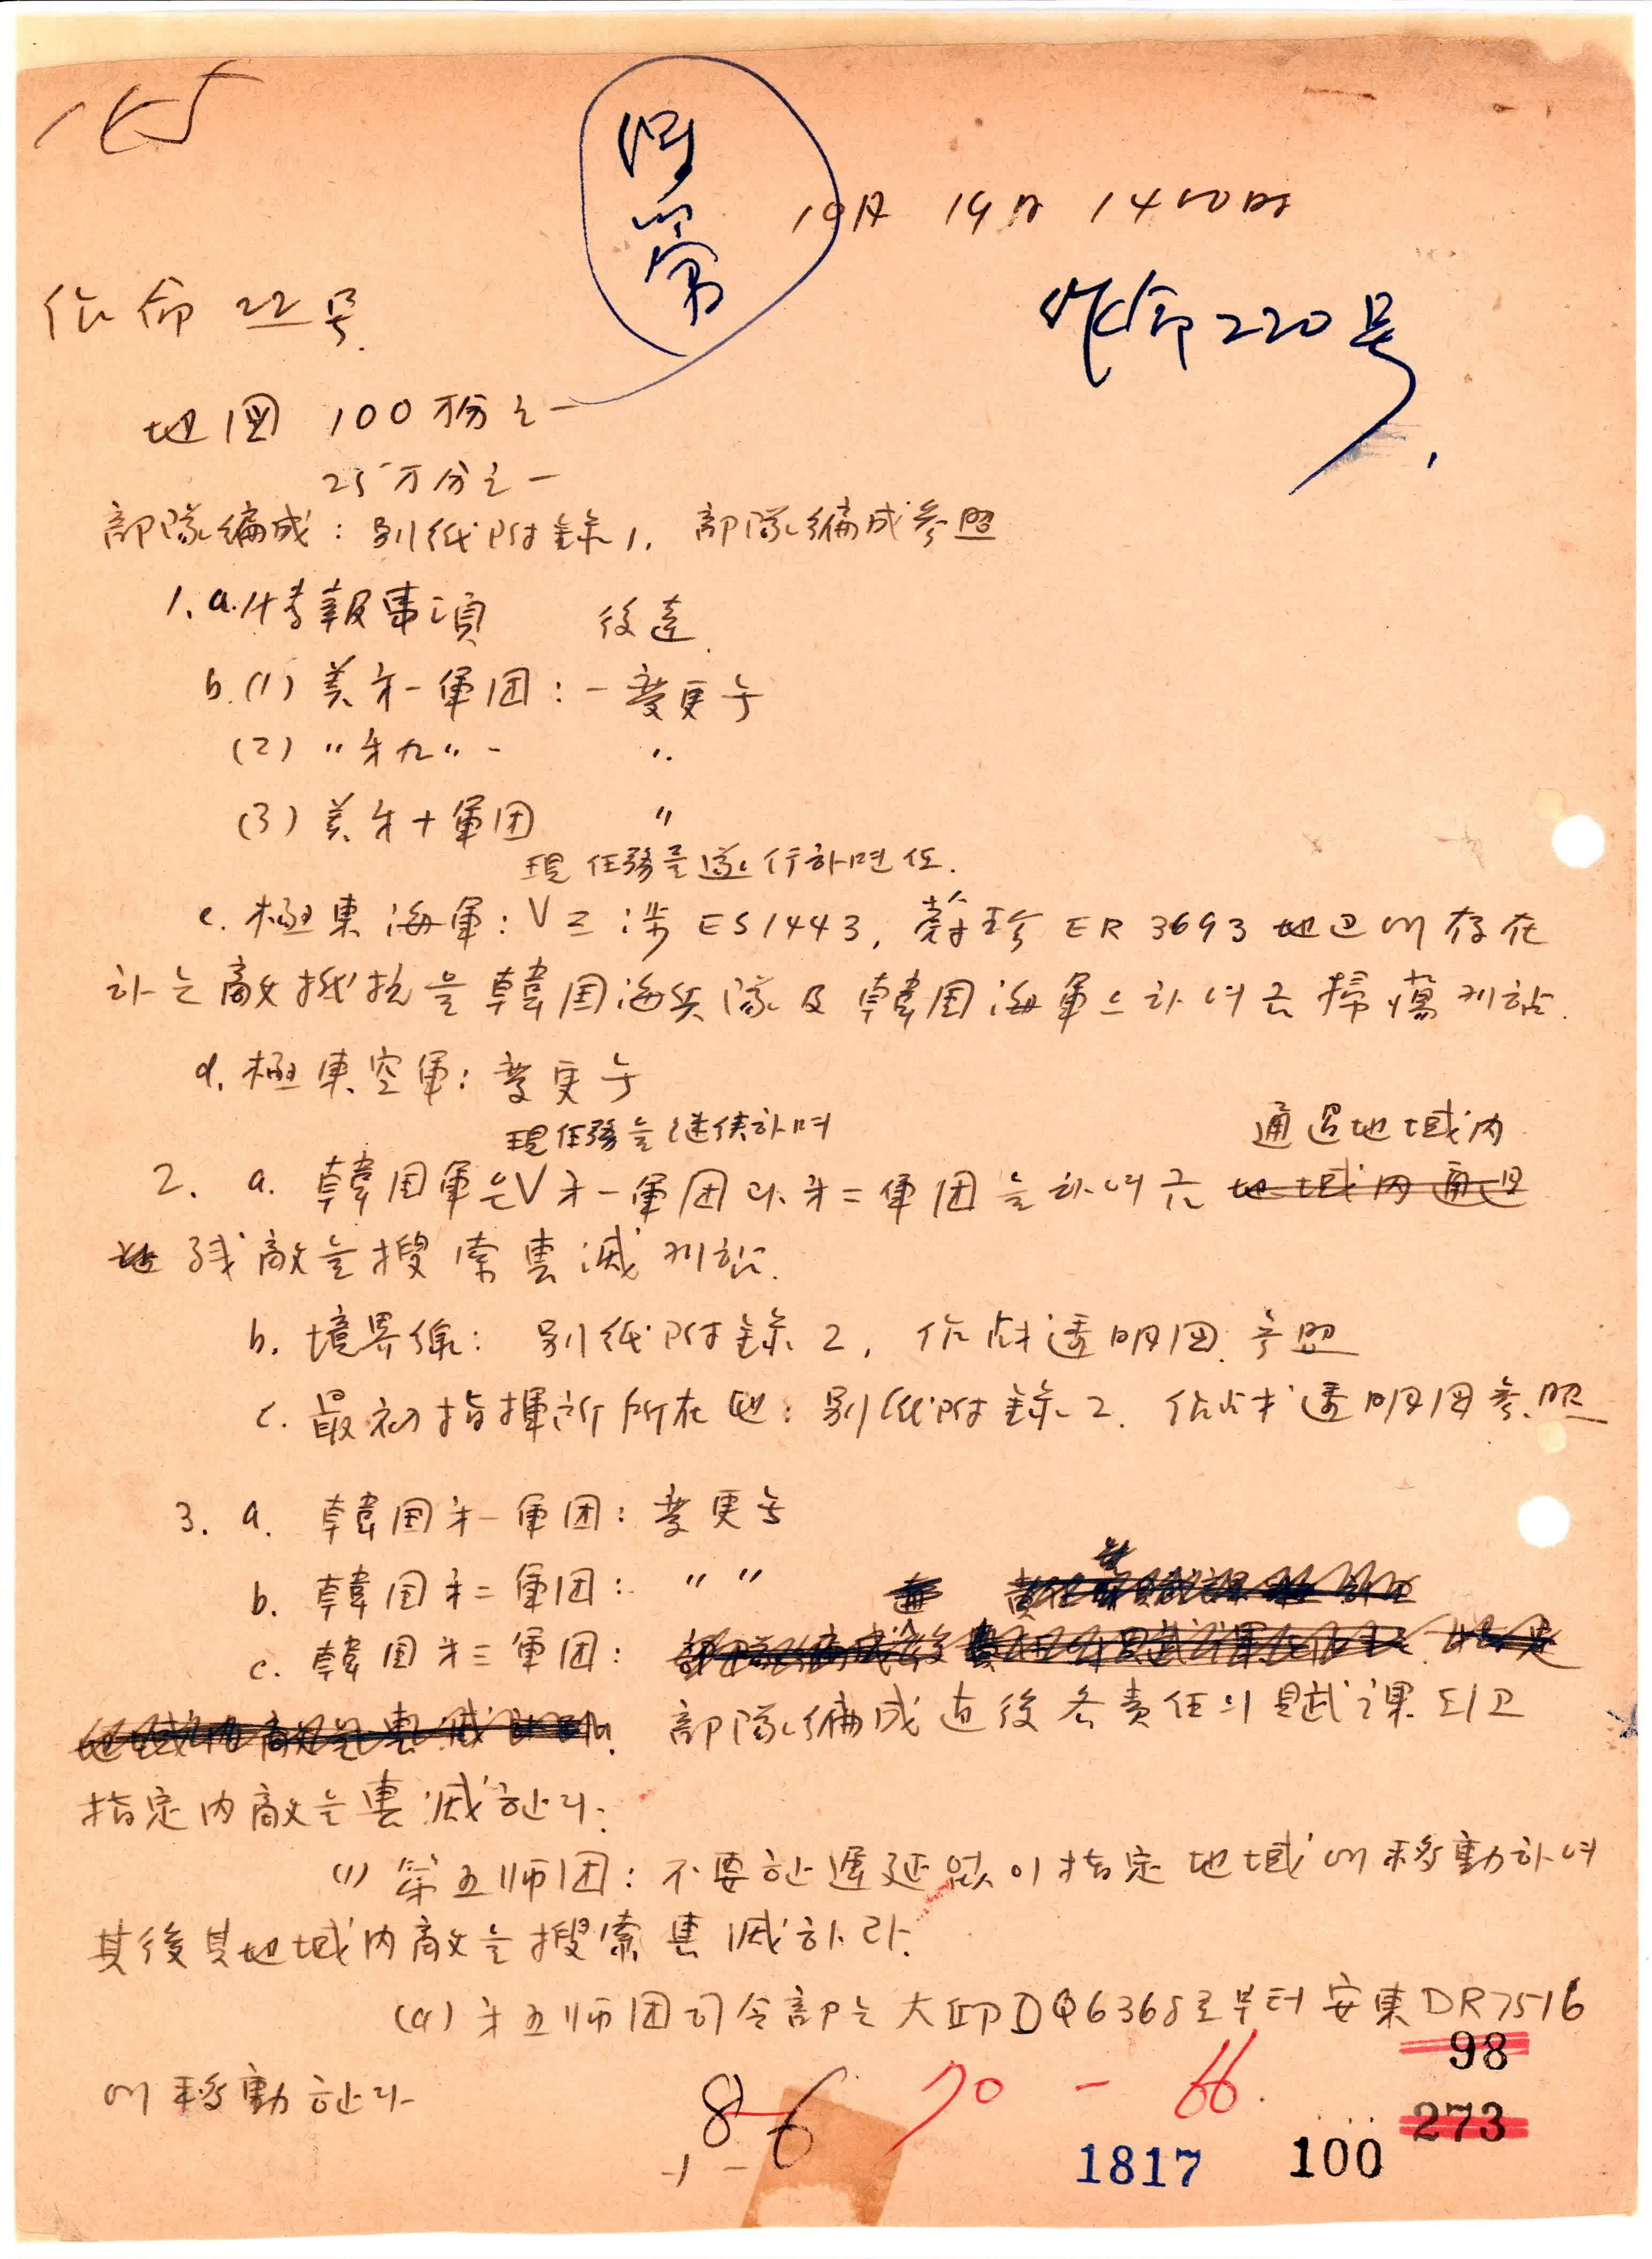 165
10月 19日 1400時
作命 22号.
作命220号.
地図 100万分之一
25万分之一
部隊編成: 別紙附録1. 部隊編成参照
1. a. 情報事項 後達.
b. (1) 美㐧一軍団: - 変更무
(2) 〃 㐧九 〃 - 〃
(3) 美㐧十軍団 〃
現任務를 遂行하면셔.
c. 極東海軍: V ES1443, 蔚珍 ER 3693 地区에 存在
하는 敵抵抗을 韓国海兵隊 及 韓国海軍으로 하여금 掃蕩케함.
d. 極東空軍: 変更무
現任務를 継続하며 通過地域内
2. a. 韓国軍은V 㐧一軍団과 㐧二軍団을 하여금 地域内通過
残敵을 捜索 轟滅케함.
b. 境界線: 別紙附録2, 作战透明図 参照
c. 最初指揮所所在地: 別紙附録2. 作战透明図参照
3. a. 韓国㐧一軍団: 変更무
b. 韓国㐧二軍団: 〃 〃
c. 韓国㐧三軍団:
部隊編成直後 各責任의 賦課되고
指定内敵을 轟滅한다.
(1) 第五师団: 不要한 遅延없이 指定地域에 移動하여
其後 其地域内敵을 捜索 轟滅하라.
(a) 㐧五师団司令部는 大邱DQ6368로부터 安東DR7516
에 移動한다
98
86 70 - 66.
273
-1-
1817 100